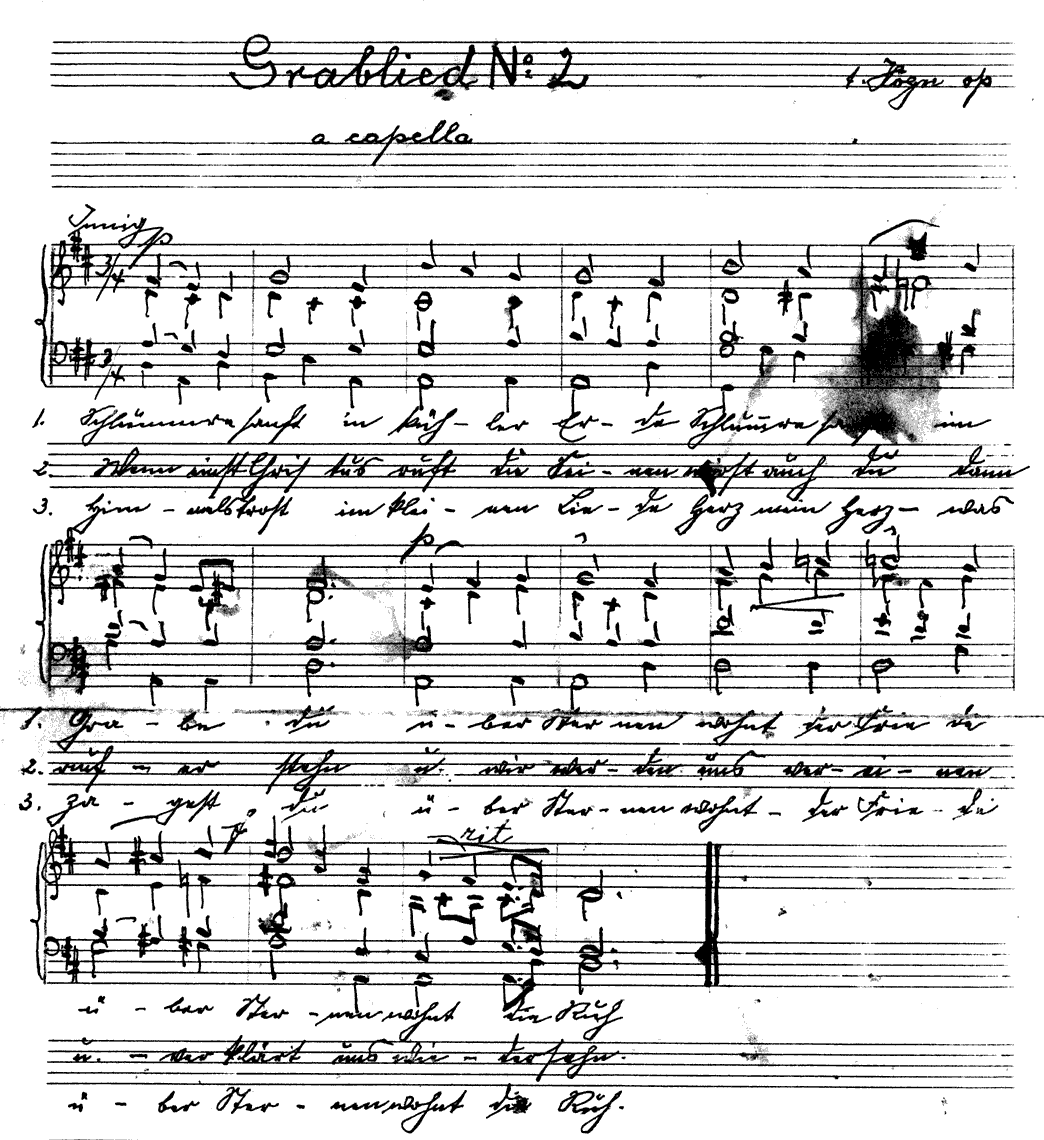 Grablied No. 2
a capella
Innig p
3/4
3/4
1. Schlummre sanft in küh- ler Er- de Schlummre im
2. Wenn einst Chris tus ruft die Sei- nen wirst auch du dann
3. Him- melstrost im klei- nen Lie- de Herz mein Herz- was
p
1. Gra- be du ü- ber Ster nen wohnt der Frie de
2. auf- er stehn u. wir wer- den uns ver- ei- nen
3. za- gest du ü- ber Ster- nen wohnt- der Frie- de
rit
ü- ber Ster- nen wohnt die Ruh
u.- ver klärt uns wie- dersehn.
ü- ber Ster- nen wohnt die Ruh.